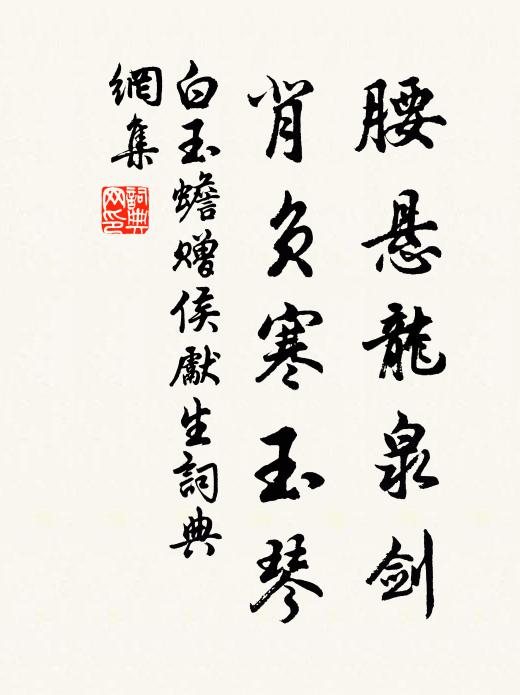 腰悬龍泉剑
背负寒玉琴
白玉蟾赠侯獻生詞典
網集
詞典网印